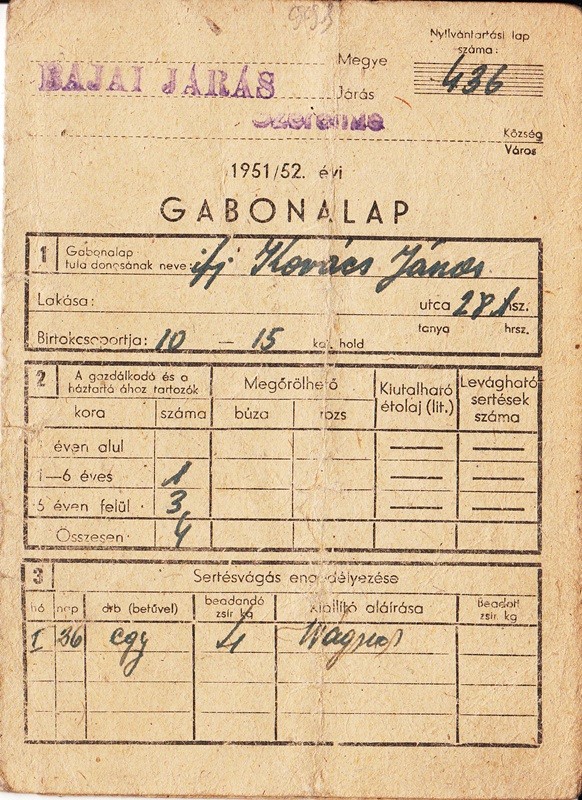 Nyilvántartási lap
száma:
Megye
436
BAJAI JÁRÁS
Járás
Szeremle
Község
Város
1951/52. évi
GABONALAP
1 Gabonalap
tulajdonosának neve: ifj Kovács János
Lakása: utca 281 hsz.
tanya hrsz.
Birtokcsoportja: 10 — 15 kat. hold
2 A gazdálkodó és a háztartásához tartozók Megőrölhető Kiutalható étolaj (lit.) Levágható sertések száma
kora száma búza rozs
1 éven alul
1—6 éves 1
6 éven felül 3
Összesen 4
3 Sertésvágás engedélyezése
hó nap drb (betűvel) beadandó zsír kg kiállító aláírása Beadott zsír kg
I egy 4